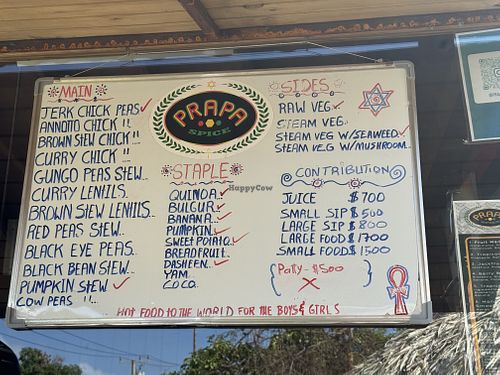 MAIN
JERK CHICK PEAS
ANNOTTO CHICK "
BROWN STEW CHICK "
CURRY CHICK "
GUNGO PEAS STEW
CURRY LENTILS
BROWN STEW LENTILS
RED PEAS STEW
BLACK EYE PEAS
BLACK BEAN STEW
PUMPKIN STEW
COW PEAS "
PRAPA
SPICE
STAPLE
HappyCow
QUINOA
BULGUR
BANANA
PUMPKIN
SWEET POTATO
BREADFRUIT
DASHEEN
YAM
COCO
SIDES
RAW VEG
STEAM VEG
STEAM VEG W/SEAWEED
STEAM VEG W/MUSHROOM
CONTRIBUTION
JUICE $700
SMALL SIP $500
LARGE SIP $800
LARGE FOOD $1700
SMALL FOOD $1500
Patty - $500
HOT FOOD TO THE WORLD FOR THE BOYS & GIRLS
PRAPA